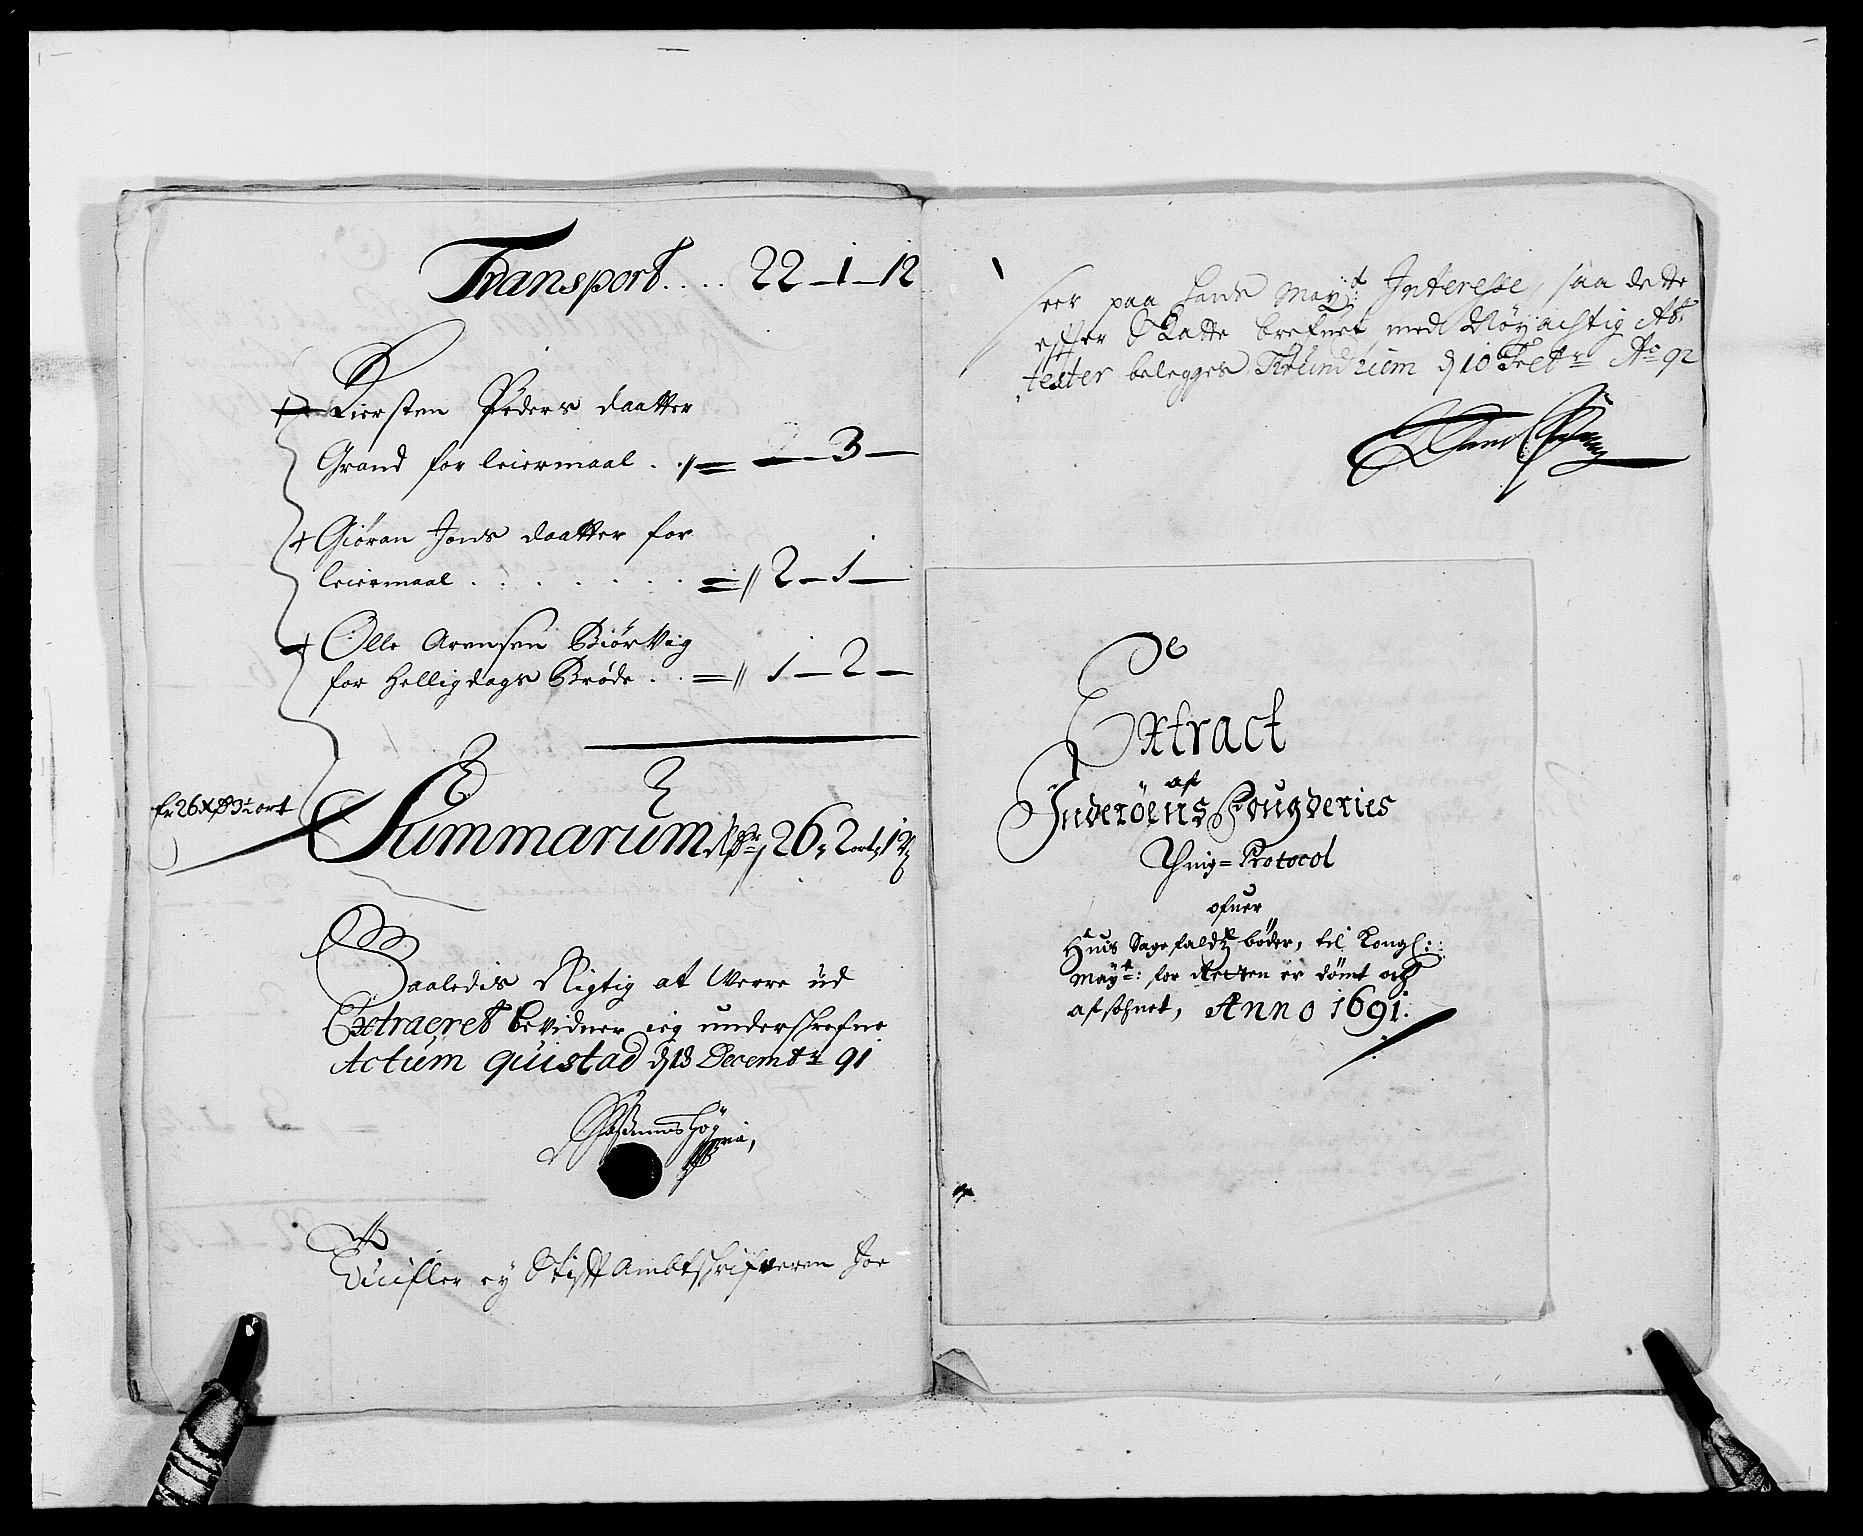 Transport.... 22 - 1 - 12
Kiersten Peders daatter
Grand for leiermaal . // = — 3 —
Giøran Jons daatter for
leiermaal . . . . . . . = // 2 - 1 —
Olle Arensen Biørkvig
for helligdags Brøde . . = // 1 - 2 —
er 26 Rd 3½ ort
Summarum 26, 2 ort, 12
Saaledis Rigtig at Verre ud
Extraeret bevidner ieg underschrefne
Actum Quistad d 13 Decembr 91
Tuifler ey Stifft Ambtschrifveren Joe
seer paa hans Mayts Interesse, saa dette
effter Skatte brefuet med Nøyachtig At-
tester belegges Trundhiem d 10 Febr Ao 92
Extract
af
Inderøens Fougderies
Thing-Protocol
ofuer
Huis Sagefaldz bøder, til Kongl:
Mayt: for Retten er dømt och
afsohnet, Anno 1691: